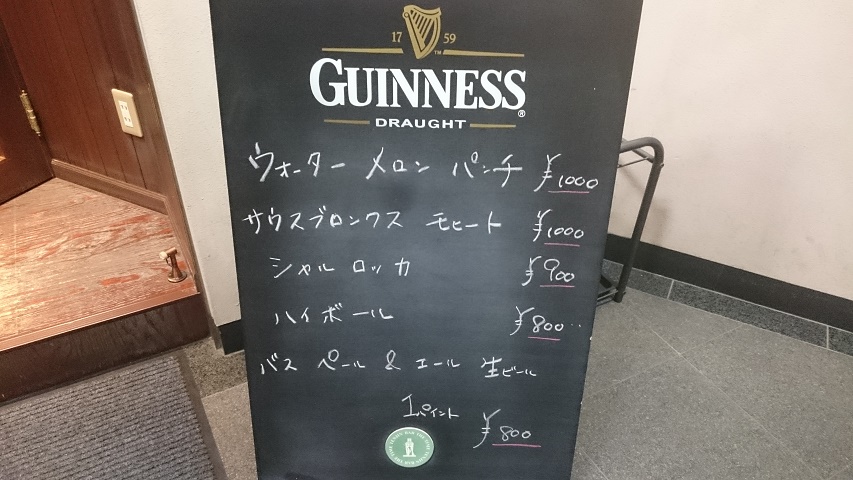 17 59
GUINNESS
DRAUGHT
ウォーター メロン パンチ ¥1000
サウスブロンクス モヒート ¥1000
シャルロッカ ¥900
ハイボール ¥800
バス ペール & エール 生ビール
1パイント ¥800